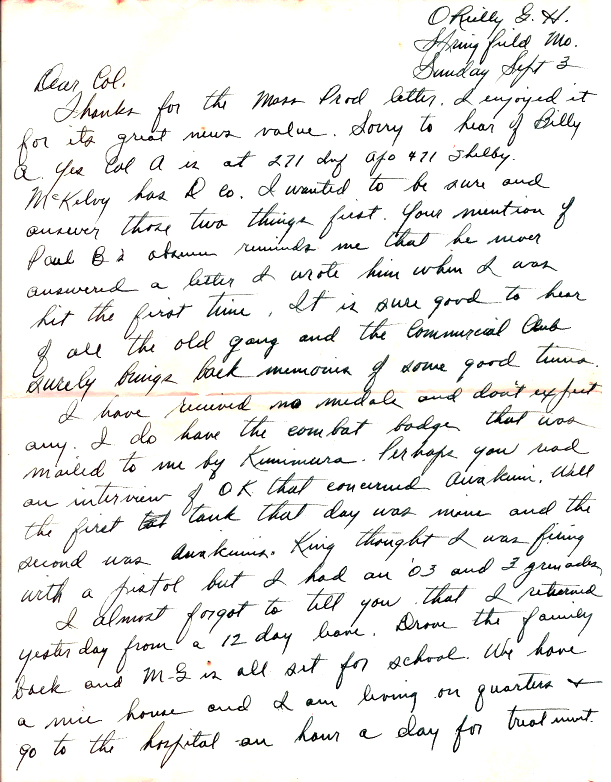 O'Reilly G. H.
Springfield Mo.
Sunday Sept 3
Dear Col.
Thanks for the Mass Prod letter. I enjoyed it
for its great news value. Sorry to hear of Billy
A. Yes Col A is at 271 Inf APO 471 Shelby.
McKelvy has D co. I wanted to be sure and
answer those two things first. Your mention of
Paul B's absence reminds me that he never
answered a letter I wrote him when I was
hit the first time. It is sure good to hear
of all the old gang and the Commercial Club
surely brings back memories of some good times.
I have received no medals and don't expect
any. I do have the combat badge that was
mailed to me by Kimimura. Perhaps you read
an interview of OK that concerned Awakuni. Well
the first tank that day was mine and the
second was Awakunis. King thought I was firing
with a pistol but I had an '03 and 3 grenades
I almost forgot to tell you that I returned
yesterday from a 12 day leave. Drove the family
back and M-G is all set for school. We have
a nice house and I am living on quarters +
go to the hospital an hour a day for treatment.